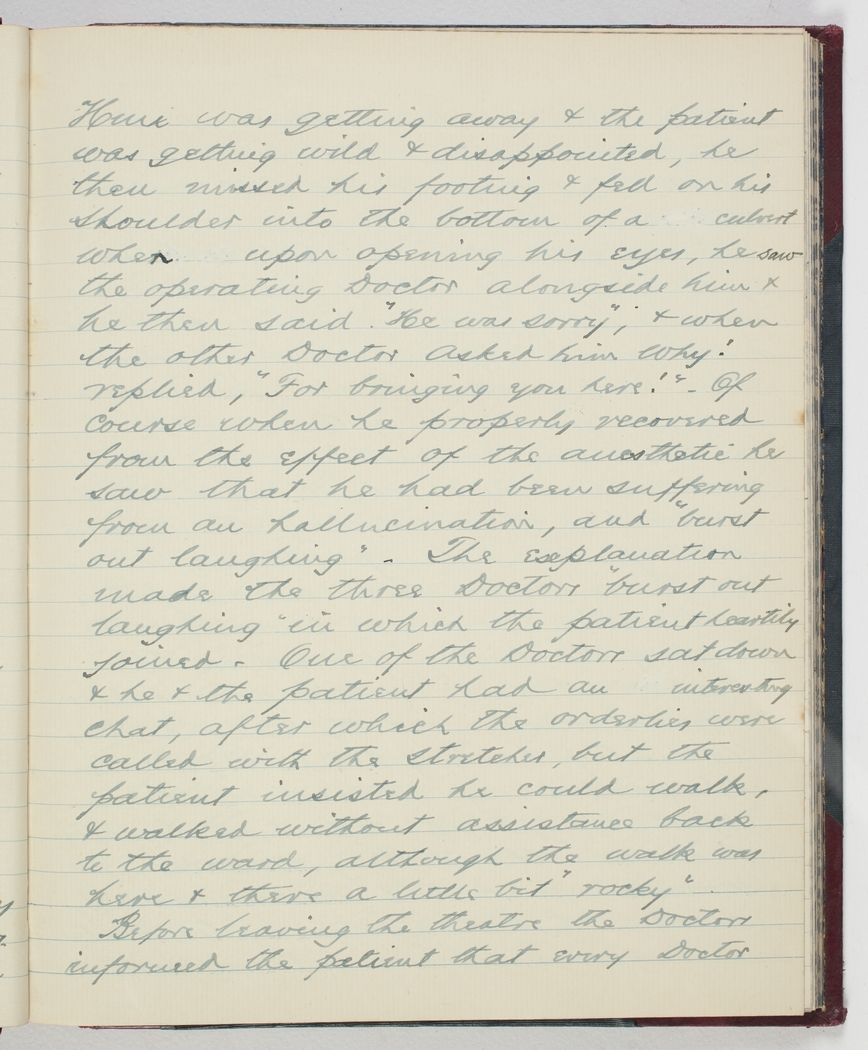 Huni was getting away & the patient
was getting wild & disappointed, he
then missed his footing & fell on his
shoulder into the bottom of a culvert
when upon opening his eyes, he saw
the operating Doctor alongside him &
he then said "He was sorry"; & when
the other Doctor asked him Why!
replied, "For bringing you here!" - Of
course when he properly recovered
from the effect of the anesthetic he
saw that he had been suffering
from an hallucination, and "burst
out laughing" - The explanation
made the three Doctors "burst out
laughing" in which the patient heartily
joined - One of the Doctors sat down
& he & the patient had an interesting
chat, after which the orderlies were
called with the stretcher, but the
patient insisted he could walk,
& walked without assistance back
to the ward, although the walk was
here & there a little bit "rocky"
Before leaving the theatre the Doctors
informed the patient that every Doctor